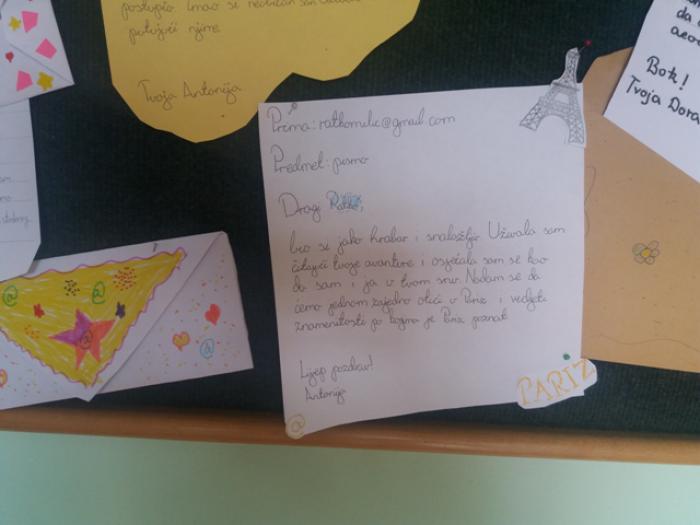 postupio. Imao si neobičan san
putujući njime.
Tvoja Antonija
Prima: ratkomilic@gmail.com
Predmet: pismo
Dragi Ratko,
bio si jako hrabar i snalažljiv. Uživala sam
čitajući tvoje avanture i osjećala sam se kao
da sam i ja u tvom snu. Nadam se da
ćemo jednom zajedno otići u Pariz i vidjeti
znamenitosti po kojima je Pariz poznat.
Lijep pozdrav!
Antonija
@
PARIZ
da
Bok!
Tvoja Dora